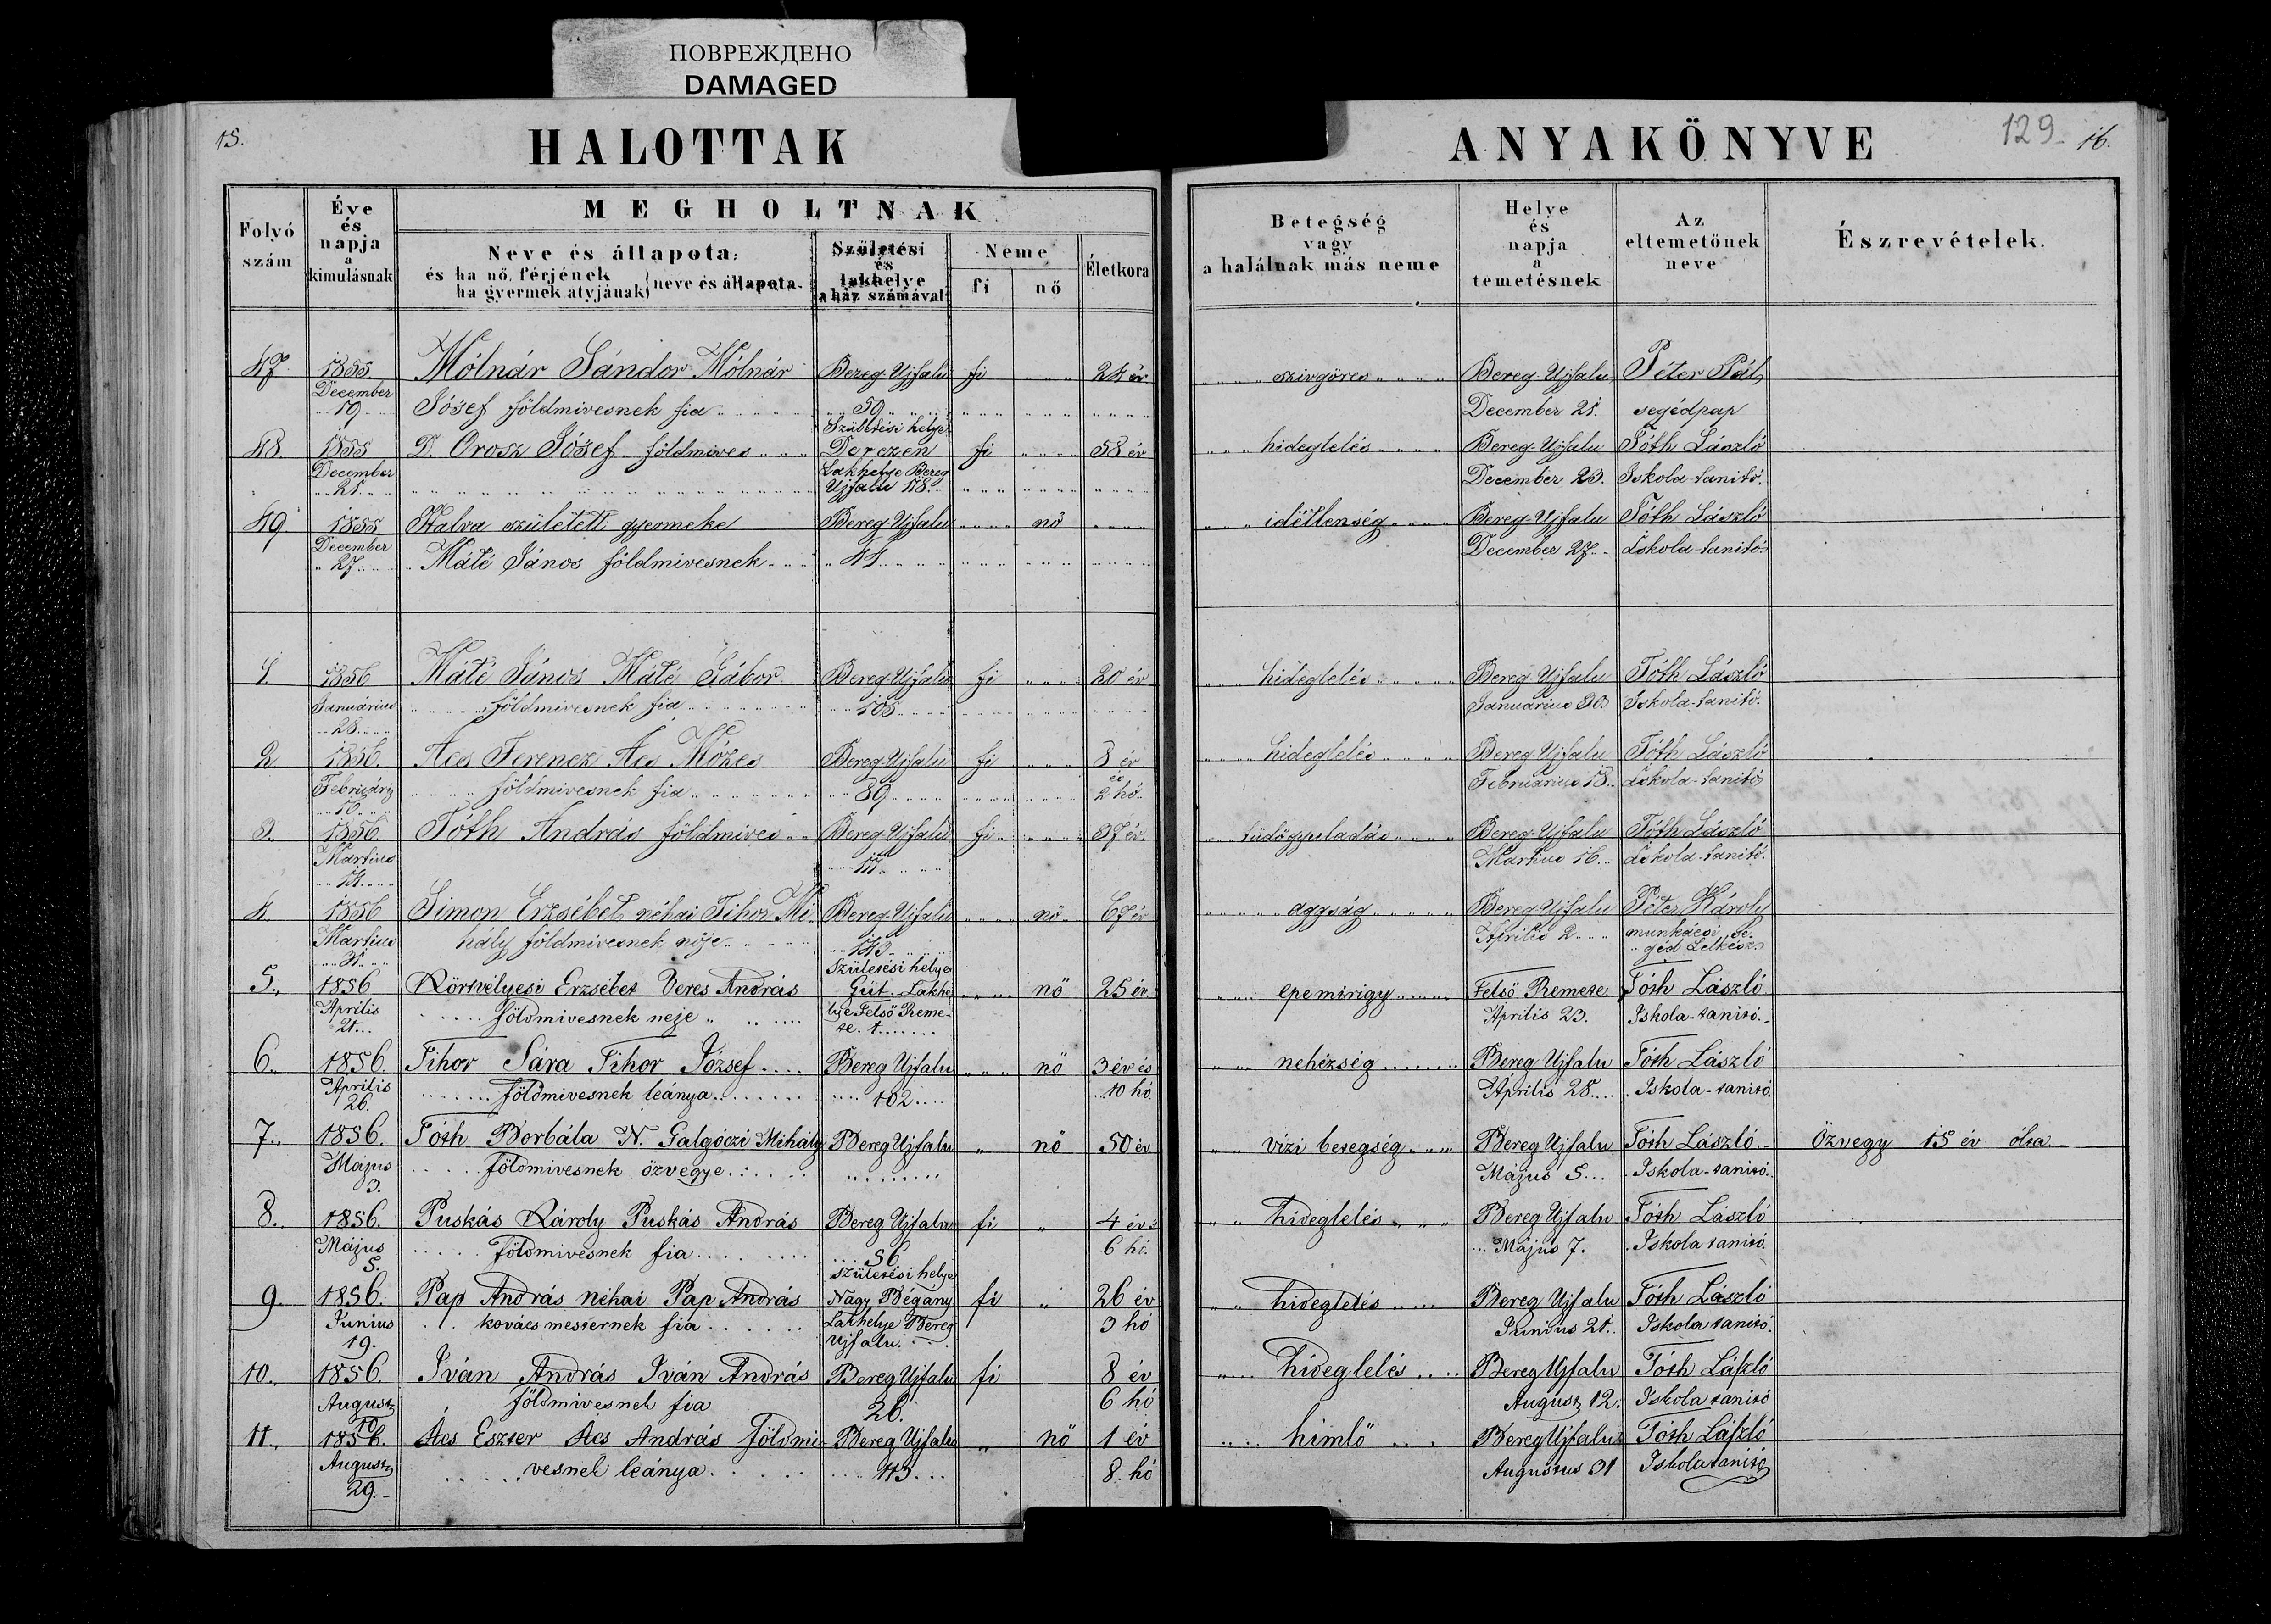 ПОВРЕЖДЕНО
DAMAGED
15.
HALOTTAK
ANYAKÖNYVE
129
16.
Folyó szám
Éve és napja a kimulásnak
MEGHOLTNAK
Neve és állapota,
és ha nő, férjének
ha gyermek atyjának
neve és állapota.
Születési és lakhelye a ház számával
Neme
fi
nő
Életkora
Betegség vagy a halálnak más neme
Helye és napja a temetésnek
Az eltemetőnek neve
Észrevételek.
47. 1855 Mólnár Sándor Mólnár Bereg-Ujfalu fi 24 év szivgöres Bereg-Ujfalu Péter Pál
December 19 Jósef földmivesnek fia 59 December 21. segédpap
48. 1855 D. Orosz Jósef földmives Születési helye Derczen fi 58 év hideglelés Bereg-Ujfalu Tóth László
December 21. Lakhelye Bereg Ujfalu 118. December 23. Iskola-tanitó.
49. 1855 Halva született gyermeke Bereg-Ujfalu nő idétlenség Bereg-Ujfalu Tóth László
December 27. Máté János földmivesnek 44 December 27. Iskola-tanitó
1. 1856 Máté János Máté Gábor Bereg-Ujfalu fi 20 év hideglelés Bereg-Ujfalu Tóth László
Januárius 28. földmivesnek fia 105 Januárius 30. Iskola-tanitó.
2. 1856. Acs Ferencz Acs Mózes Bereg-Ujfalu fi 8 év hideglelés Bereg-Ujfalu Tóth László
Februárij 16. földmivesnek fia 89 és 2 hó. Februárius 18. Iskola-tanitó
3. 1856. Tóth András földmives Bereg-Ujfalu fi 37 év tüdőgyuladás Bereg-Ujfalu Tóth László
Martius 14. 111. Martius 16. Iskola-tanitó.
4. 1856 Simon Erzsébet néhai Tihor Mi- Bereg-Ujfalu nő 67 év aggság Bereg-Ujfalu Péter Károly
Martius 31. hály földmivesnek nője 143 Aprilis 2. munkácsi se-
géd Lelkész
5. 1856 Körtvélyesi Erzsébet Veres András Születési helye Gút. Lakhe- nő 25 év epemirigy Felső Remete. Tóth László
Aprilis 21. földmivesnek neje lye Felső Reme-
te. 1. Aprilis 23. Iskola-tanitó.
6. 1856. Tihor Sára Tihor József Bereg Ujfalu nő 3 év és nehézség Bereg Ujfalu Tóth László
Aprilis 26. földmivesnek leánya 102 10 hó. Aprilis 28. Iskola-tanitó.
7. 1856. Tóth Borbála N. Galgóczi Mihály Bereg Ujfalu nő 50 év vizi betegség Bereg Ujfalu Tóth László Özvegy 15 év ólta.
Május 3. földmivesnek özvegye Május 5. Iskola-tanitó.
8. 1856. Puskás Károly Puskás András Bereg Ujfalu fi 4 év hideglelés Bereg Ujfalu Tóth László
Május 5. földmivesnek fia 56 6 hó. Május 7. Iskola tanitó.
9. 1856. Pap András néhai Pap András születési helye Nagy Bégány fi 26 év hideglelés Bereg Ujfalu Tóth László
Junius 19. kovács mesternek fia Lakhelye Bereg Ujfalu. 3 hó Junius 21. Iskola tanitó.
10. 1856. Iván András Iván András Bereg Ujfalu fi 8 év hideglelés Bereg Ujfalu Tóth László
August, 10. földmivesnek fia 26. 6 hó August, 12. Iskola tanitó
11. 1856. Acs Eszter Acs András földmi- Bereg Ujfalu nő 1 év himlő Bereg Ujfalu Tóth László
August, 29. vesnek leánya 113 8. hó Augustus 31 Iskolatanitó